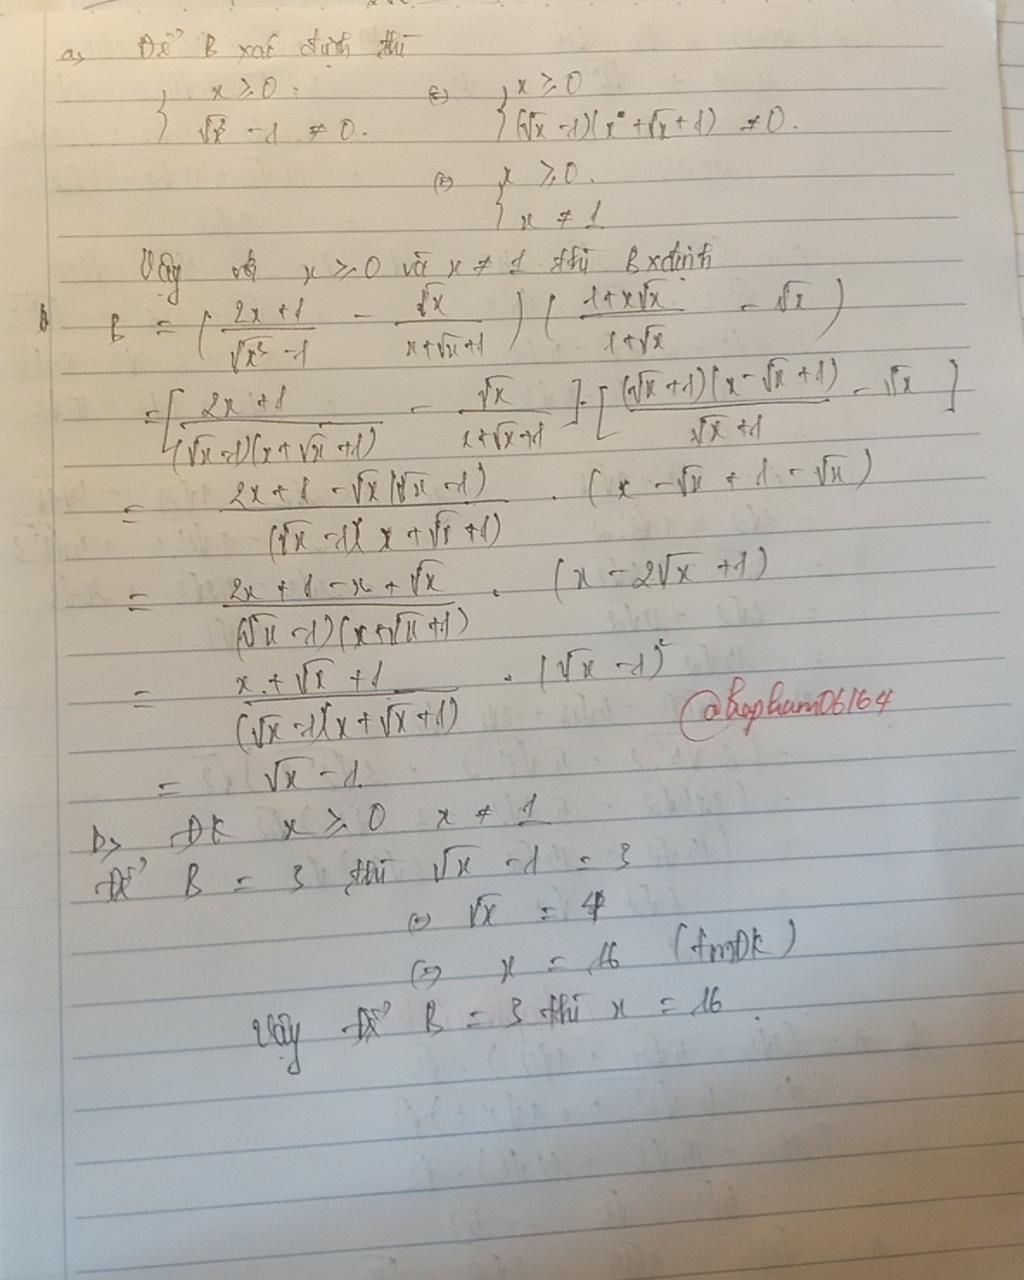 a) Để B xác định thì
{ x ≥ 0 ⇔ { x ≥ 0
{ √x³ - 1 ≠ 0. { (√x - 1)(x + √x + 1) ≠ 0.
⇔ { x ≥ 0.
{ x ≠ 1
Vậy với x ≥ 0 và x ≠ 1 thì B xđịnh
B = ( (2x + 1)/(√x³ - 1) - √x/(x + √x + 1) ) ( (1 + x√x)/(1 + √x) - √x )
= [ (2x + 1)/((√x - 1)(x + √x + 1)) - √x/(x + √x + 1) ] . [ ((√x + 1)(x - √x + 1))/(√x + 1) - √x ]
= (2x + 1 - √x(√x - 1))/((√x - 1)(x + √x + 1)) . (x - √x + 1 - √x)
= (2x + 1 - x + √x)/((√x - 1)(x + √x + 1)) . (x - 2√x + 1)
= (x + √x + 1)/((√x - 1)(x + √x + 1)) . (√x - 1)²
@hopham06164
= √x - 1.
b) ĐK x ≥ 0 x ≠ 1
Để B = 3 thì √x - 1 = 3
⇔ √x = 4
⇔ x = 16 (tmĐK)
Vậy Để B = 3 thì x = 16.